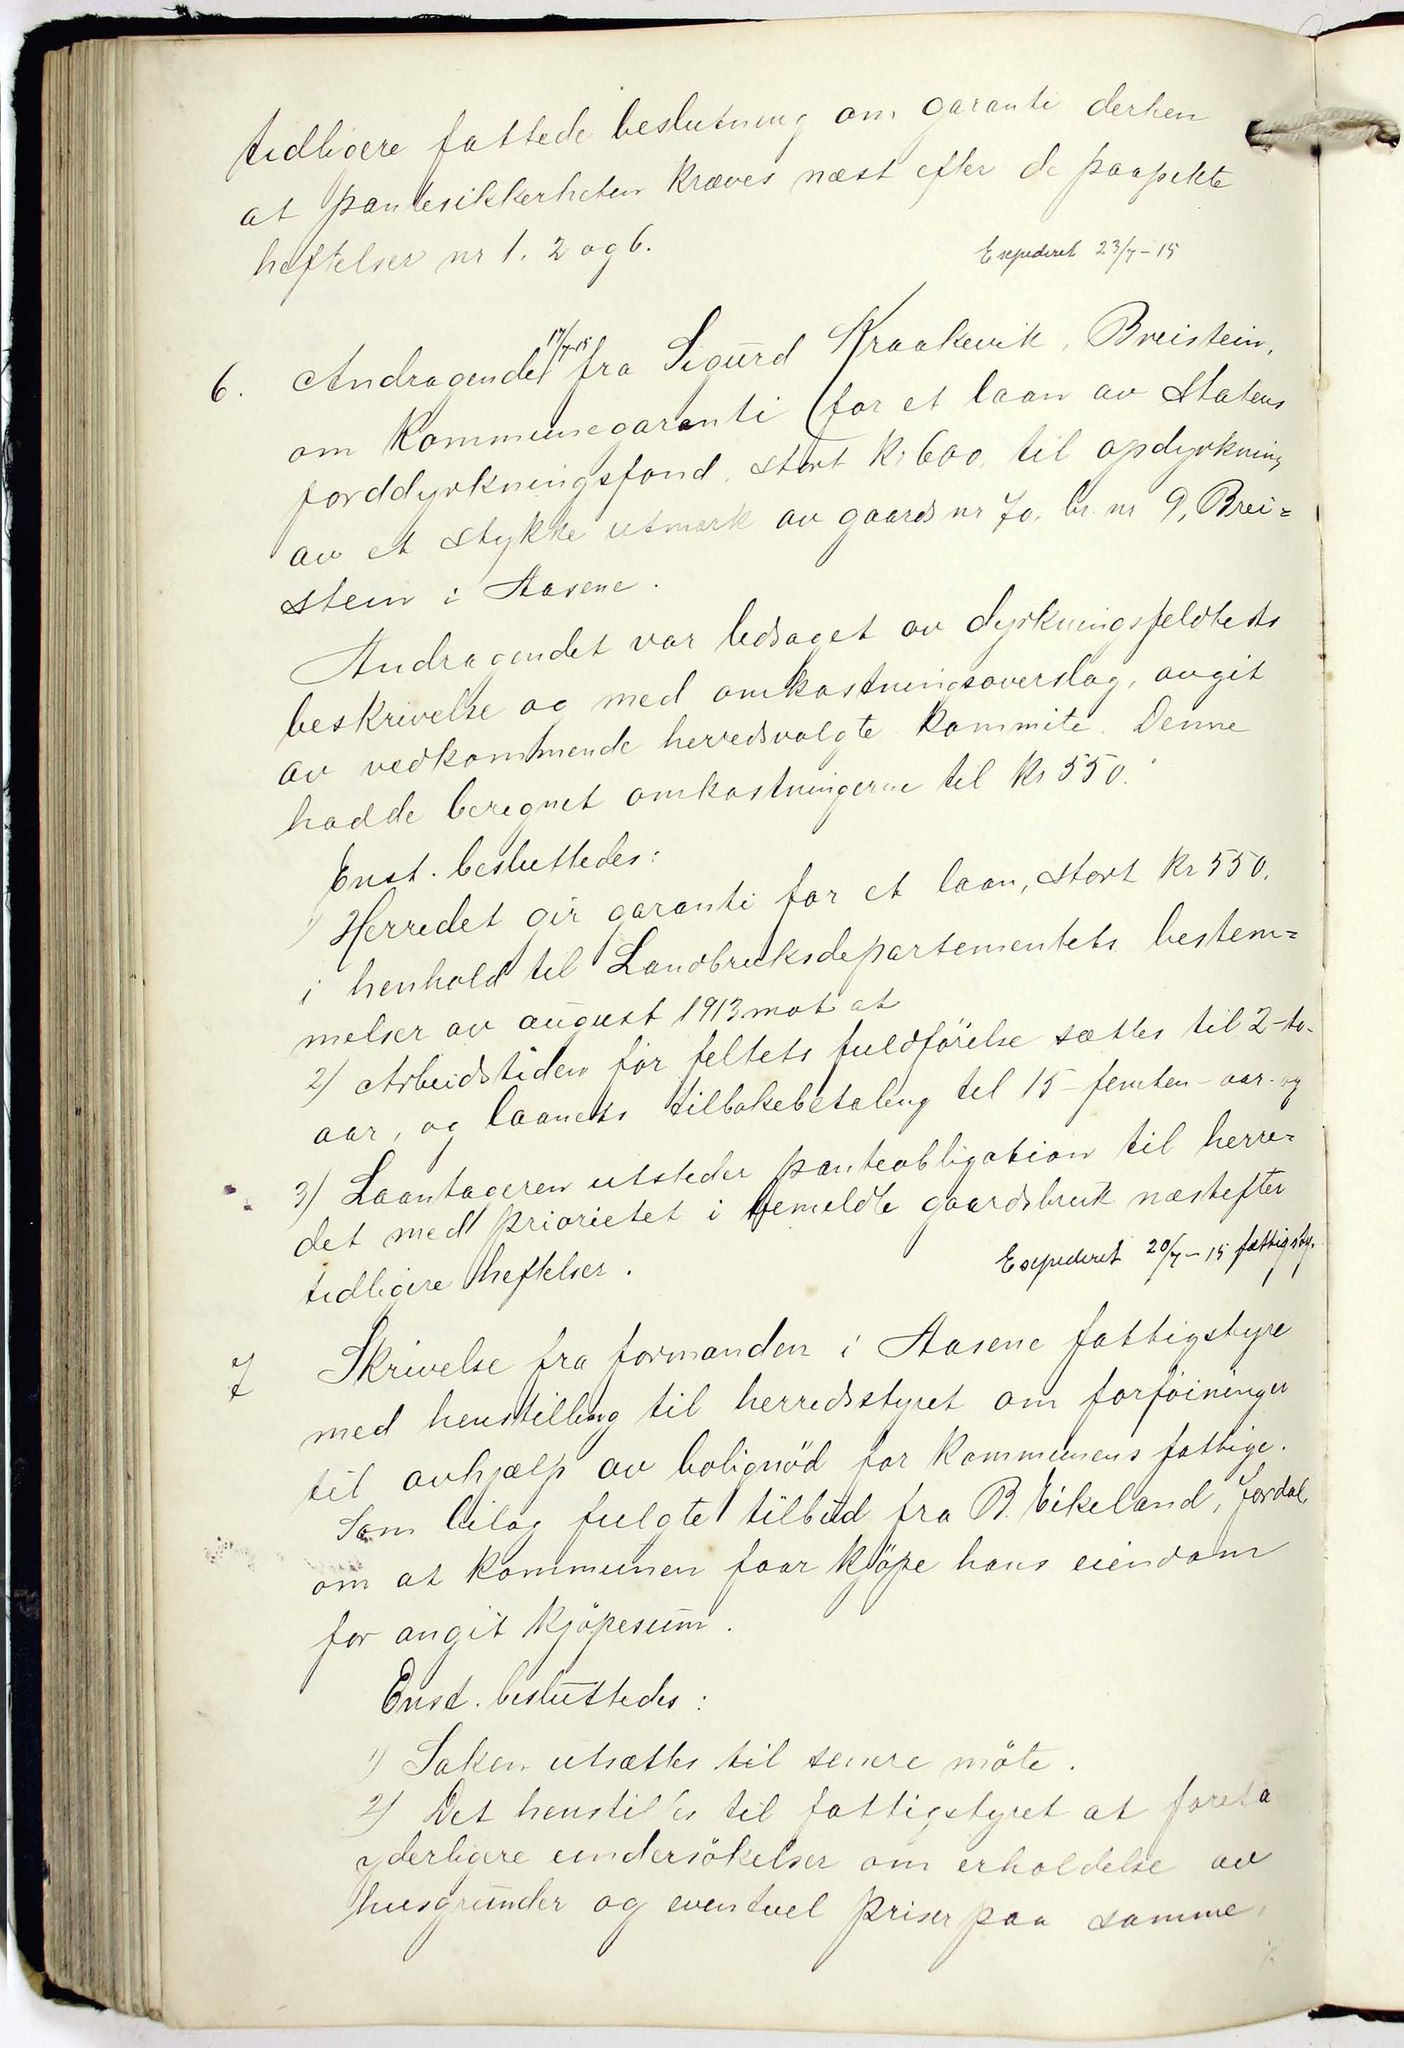 tidligere fattede beslutning om garanti derhen
at pantesikkerheten kræves næst efter de paapekte
heftelser nr 1. 2 og 6.
Expederet 23/7-15
6. Andragende 17/7-15 fra Sigurd Kraakevik, Breistein,
om kommunegaranti for et laan av Statens
jorddyrkningsfond, stort kr 600, til opdyrkning
av et stykke utmark av gaards nr 70. br. nr 9, Brei=
stein i Aasene.
Andragendet var ledsaget av dyrkningsfeldtets
beskrivelse og med omkostningsoverslag, avgit
av vedkommende herredsvalgte kommite. Denne
hadde beregnet omkostningerne til kr 550.
Enst. besluttedes:
1) Herredet gir garanti for et laan, stort kr 550,
i henhold til Landbruksdepartementets bestem=
melser av august 1913 mot at
2) Arbeidstiden for feltets fuldførelse sættes til 2-to-
aar, og laanets tilbakebetaling til 15-femten-aar. og
3) Laantageren utsteder panteobligation til herre=
det med priorietet i bemeldte gaardsbruk næstefter
tidligere heftelser.
Expederet 20/7-15 fattigsty.
7 Skrivelse fra formanden i Aasene fattigstyre
med henstilling til herredsstyret om forføininger
til avhjælp av bolignød for kommunens fattige.
Som bilag fulgte tilbud fra B. Eikeland, Jordal,
om at kommunen faar kjøpe hans eiendom
for angit kjøpesum.
Enst. besluttedes:
1) Saken utsættes til senere møte.
2) Det henstilles til fattigstyret at foreta
yderligere undersøkelser om erholdelse av
husgrunder og eventuel priser paa samme.